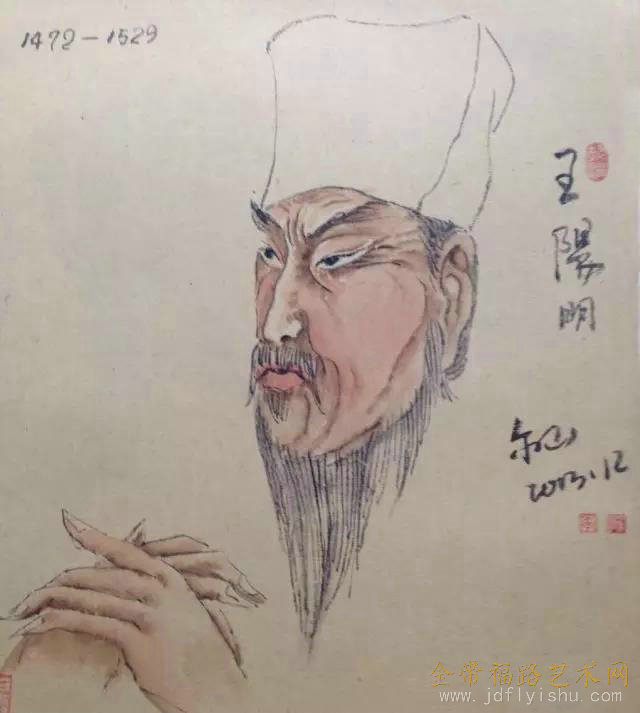 1472-1529
王陽明
2013.12
金带福路艺术网
www.jdflyishu.com